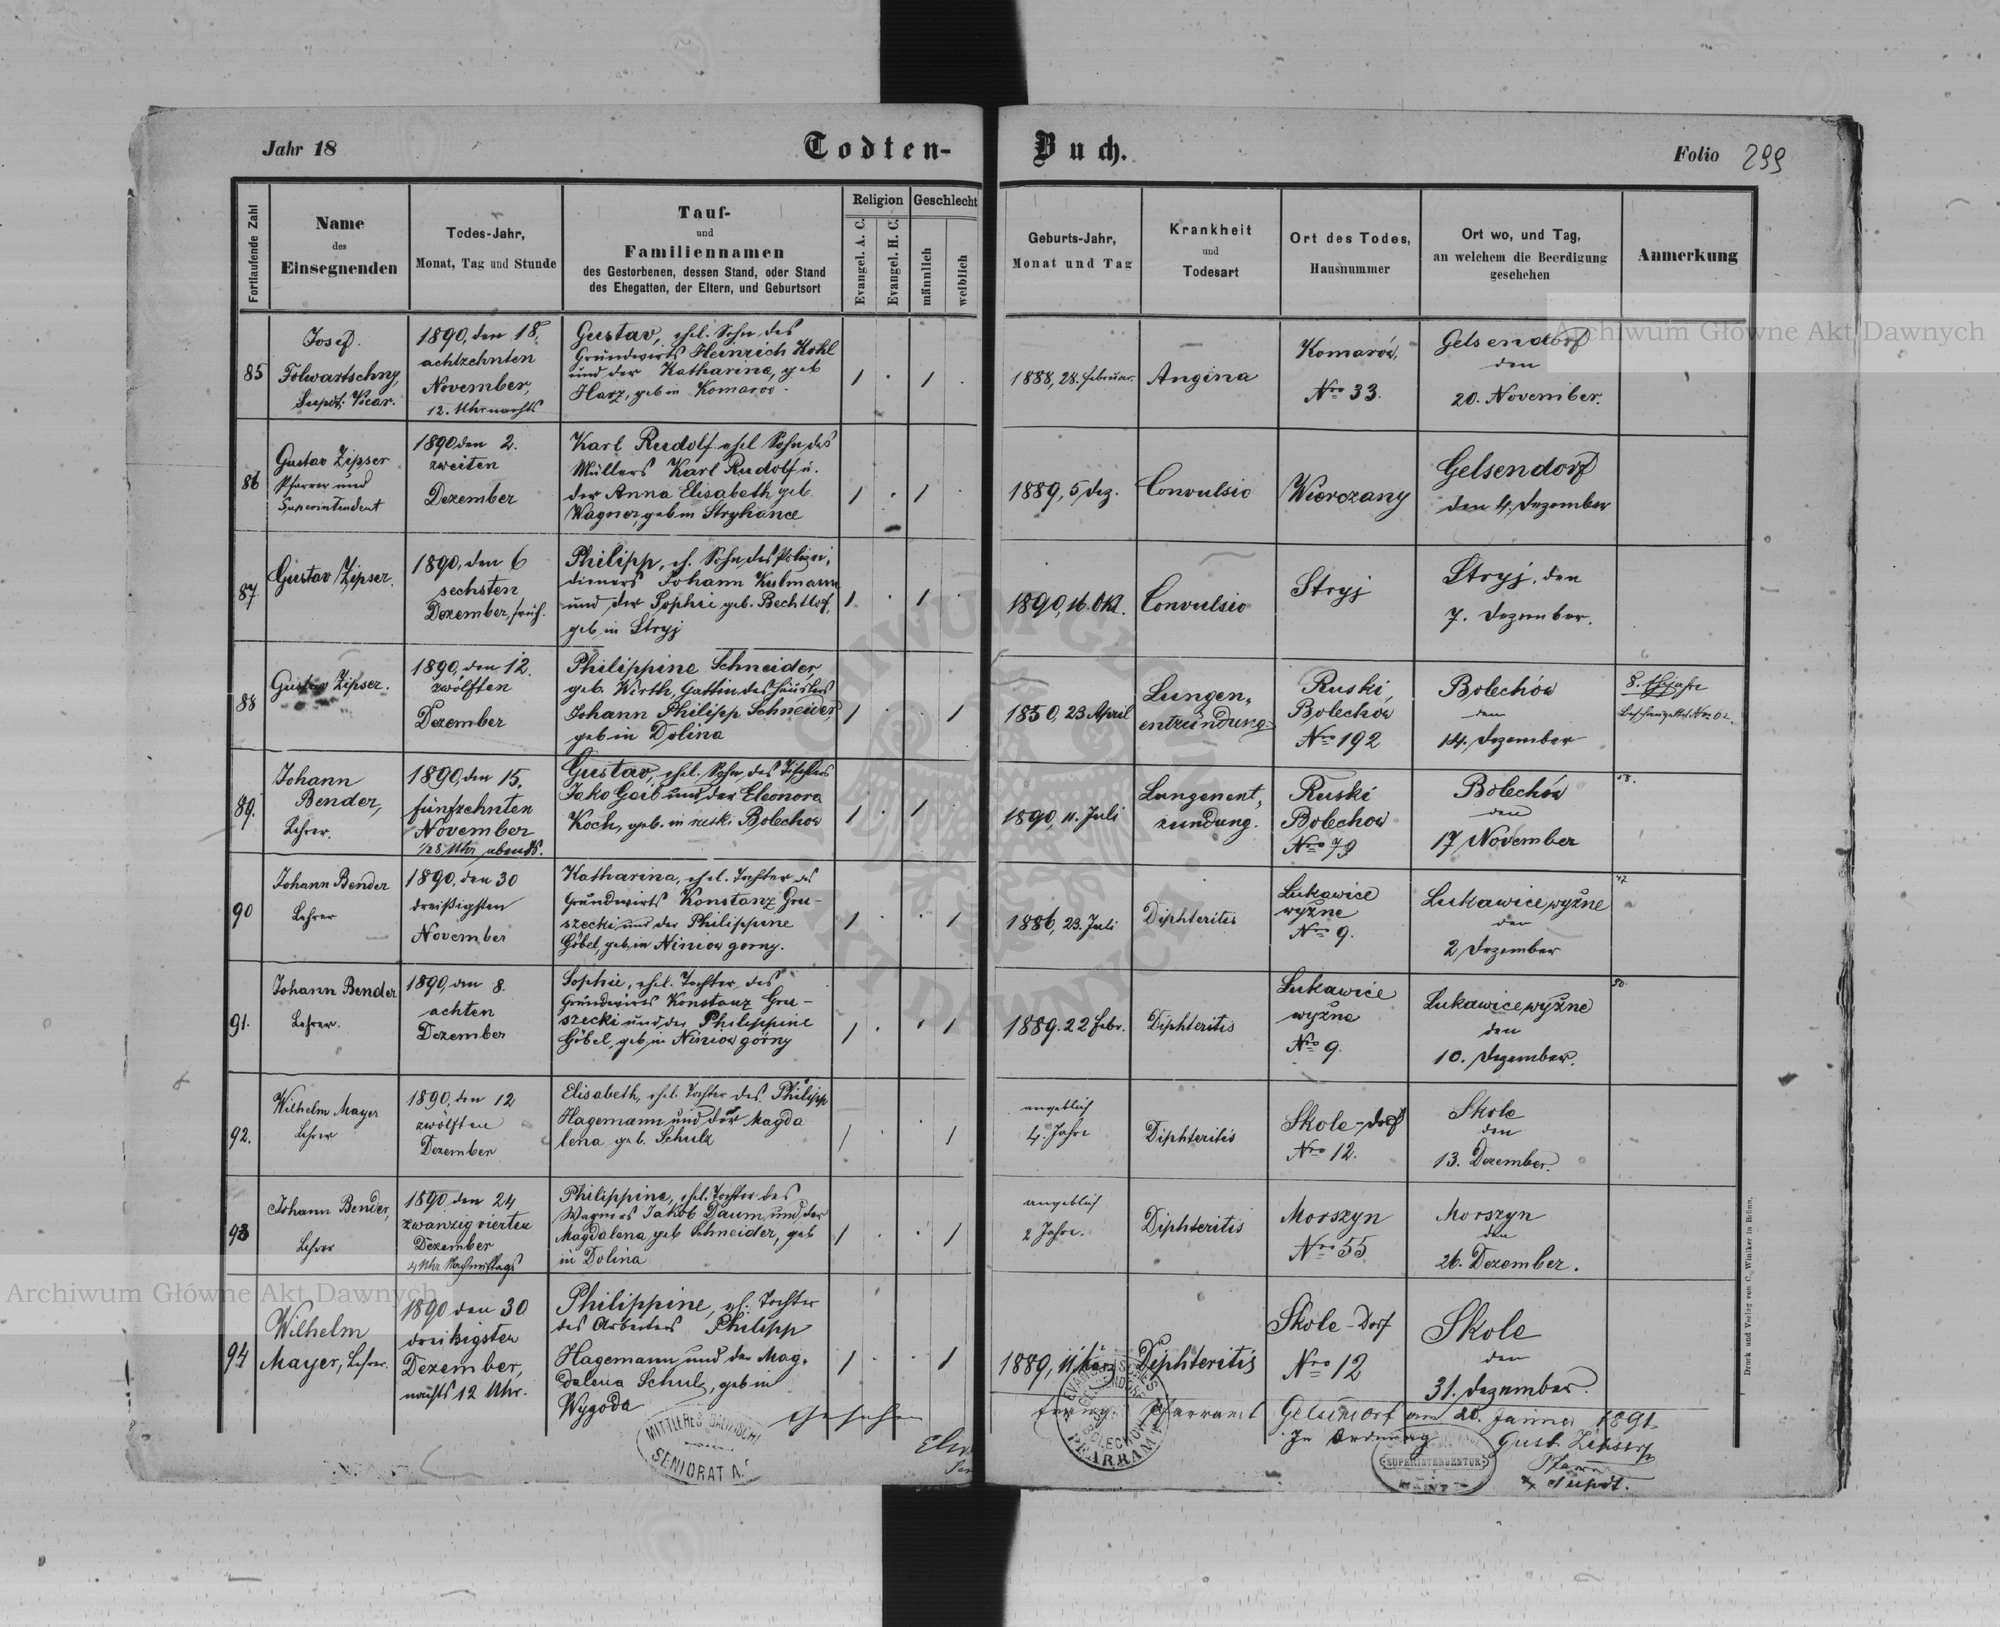 Jahr 18
Todten-
Buch.
Folio 299
Fortlaufende Zahl
Name
des
Einsegnenden
Todes-Jahr,
Monat, Tag und Stunde
Tauf-
und
Familiennamen
des Gestorbenen, dessen Stand, oder Stand
des Ehegatten, der Eltern, und Geburtsort
Religion
Evangel. A. C.
Evangel. H. C.
Geschlecht
männlich
weiblich
Geburts-Jahr,
Monat und Tag
Krankheit
und
Todesart
Ort des Todes,
Hausnummer
Ort wo, und Tag,
an welchem die Beerdigung
geschehen
Anmerkung
85
Josef
Folwartschny,
Supdt. Vicar.
1890, den 18.
achtzehnten
November,
12. Uhr nachts
Gustav, ehel. Sohn des
Grundwirts Heinrich Kohl
und der Katharina, geb
Harz, geb in Komarow.
1888, 28. Februar.
Angina
Komarów,
Nro 33.
Gelsendorf
den
20. November.
86
Gustav Zipser
Pfarrer und
Superintendent
1890 den 2.
zweiten
Dezember
Karl Rudolf ehel Sohn des
Müllers Karl Rudolf u.
der Anna Elisabeth geb.
Wagner, geb in Stryhance
1889, 5 Dez.
Convulsio
Wierczany
Gelsendorf
den 4. Dezember
87
Gustav Zipser.
1890, den 6
sechsten
Dezember, früh.
Philipp, eh. Sohn des Polizei-
dieners Johann Kulmann
und der Sophie geb. Bechtlof,
geb. in Stryj
1890, 16. Okt.
Convulsio
Stryj
Stryj, den
7. Dezember.
88
Gustav Zipser.
1890, den 12.
zwölften
Dezember
Philippine Schneider,
geb. Wirth, Gattin des Häuslers
Johann Philipp Schneider,
geb in Dolina
1850, 23 April
Lungen,
entzündung
Ruski,
Bolechow
Nro 192
Bolechów
den
14. Dezember
89.
Johann
Bender,
Lehrer.
1890, den 15.
fünfzehnten
November
1/2 8 Uhr abends.
Gustav, ehel. Sohn des Tischlers
Jako Geib und der Eleonora
Koch, geb. in ruski Bolechow
1890, 11. Juli
Lungenent,
zündung.
Ruski
Bolechow
Nro 79
Bolechów
den
17 November
90
Johann Bender
Lehrer
1890, den 30
dreißigsten
November
Katharina, ehel. Tochter des
Grundwirts Konstanz Gru-
szecki und der Philippine
Göbel, geb, in Niniow gorny.
1886, 23. Juli
Diphteritis
Lukawice
wyżne
Nro 9.
Lukawice wyżne
den
2 Dezember
91.
Johann Bender
Lehrer.
1890, den 8.
achten
Dezember
Sophie, ehel. Tochter, des
Grundwirts Konstanz Gru-
szecki und der Philippine
Göbel, geb, in Niniow górny
1889. 22 Febr.
Diphteritis
Lukawice
wyżne
Nro 9.
Lukawice wyżne
den
10. Dezember.
92.
Wilhelm Mayer
Lehrer
1890, den 12
zwölften
Dezember
Elisabeth, ehel. Tochter des Philipp
Hagemann und der Magda
lena geb. Schulz
angeblich
4. Jahre
Diphteritis
Skole-Dorf
Nro 12.
Skole
den
13. Dezember.
93
Johann Bender,
Lehrer
1890, den 24
zwanzig vierten
Dezember
4 Uhr Nachmittags
Philippine, ehel. Tochter des
Wagners Jakob Daum und der
Magdalena geb Schneider, geb
in Dolina
angeblich
2 Jahre.
Diphteritis
Morszyn
Nro 55
Morszyn
den
26. Dezember.
94
Wilhelm
Mayer, Lehrer.
1890 den 30
dreißigsten
Dezember,
nachts 12 Uhr.
Philippine, eh. Tochter
des Arbeiters Philipp
Hagemann und der Mag,
dalena Schulz, geb in
Wygoda
1889, 11 März
Diphteritis
Skole-Dorf
Nro 12
Skole
den
31. Dezember.
Gesehen
Pfarramt Gelsendorf am 20. Januar 1891
In Ordnung
Gust. Zipser
Pfarrer
& Supdt.
SENIORAT A.
PFARRAMT
SUPERINTENDENTUR
Druck und Verlag von C. Winiker in Brünn.
Archiwum Główne Akt Dawnych
Archiwum Główne Akt Dawnych